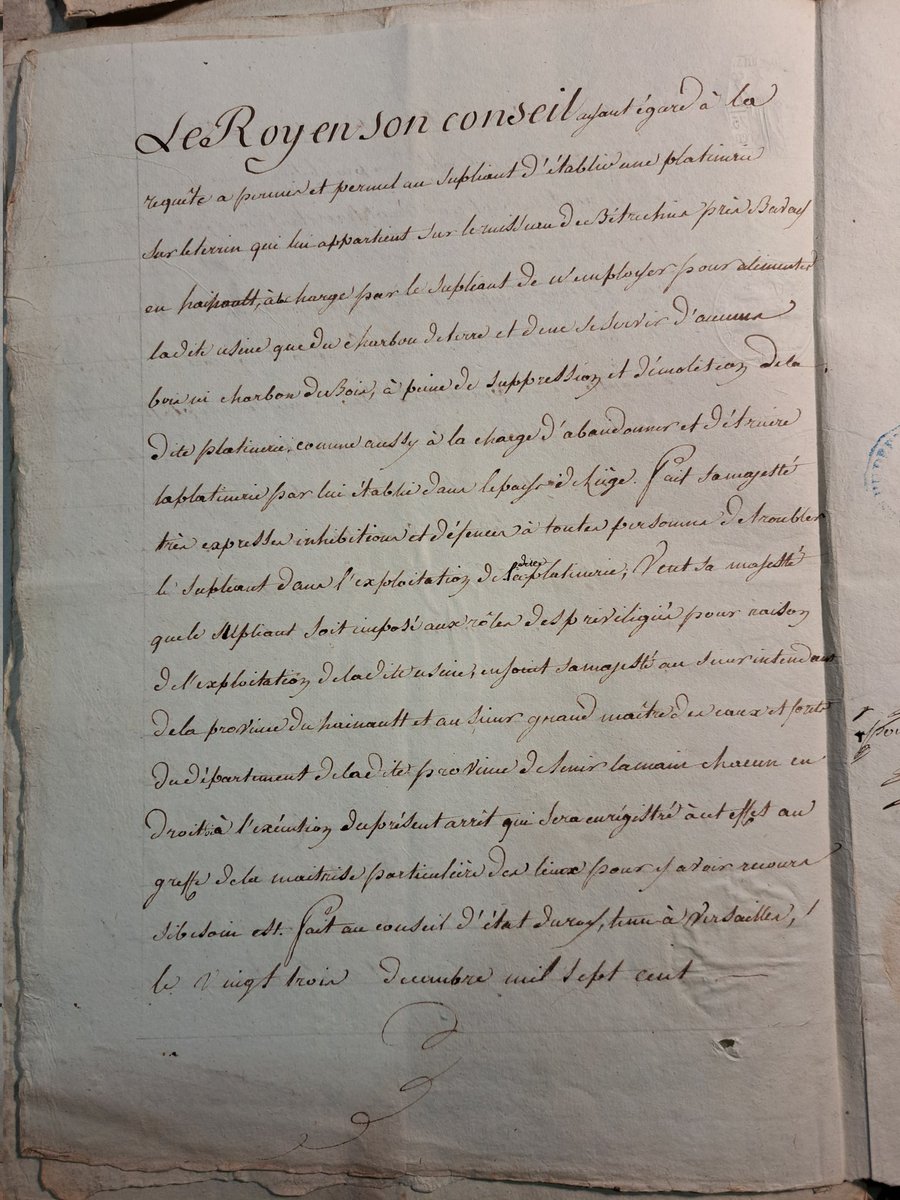 Le Roy en son conseil ayant égard à la
requête a permis et permet au supliant d'établir une platinerie
sur le terrin qui lui appartient sur le ruisseau de Bétrechies près Bavay
en hainault, à la charge par le supliant de n'employer pour alimenter
ladite usine que du charbon de terre et de ne se servir d'aucuns
bois ni charbon de Bois, à peine de suppression et démolition de la
dite platinerie, comme aussy à la charge d'abandonner et détruire
la platinerie par lui établie dans le pays de Liége. Fait sa majesté
très expresses inhibitions et défences à toutes personnes de troubler
le supliant dans l'exploitation de ladite platinerie, Veut sa majesté
que le supliant soit imposé aux rôles des priviligiés pour raison
de l'exploitation de ladite usine, enjoint sa majesté au sieur intendant
de la province du hainault et au sieur grand maître des eaux et forêts
du département de ladite province de tenir la main chacun en
droit à l'exécution du présent arrêt qui sera enrégistré à cet effet au
greffe de la maitrise particulière des lieux pour y avoir recours
si besoin est. Fait au conseil d'état du roy, tenu à Versailles,
le vingt trois decembre mil sept cent